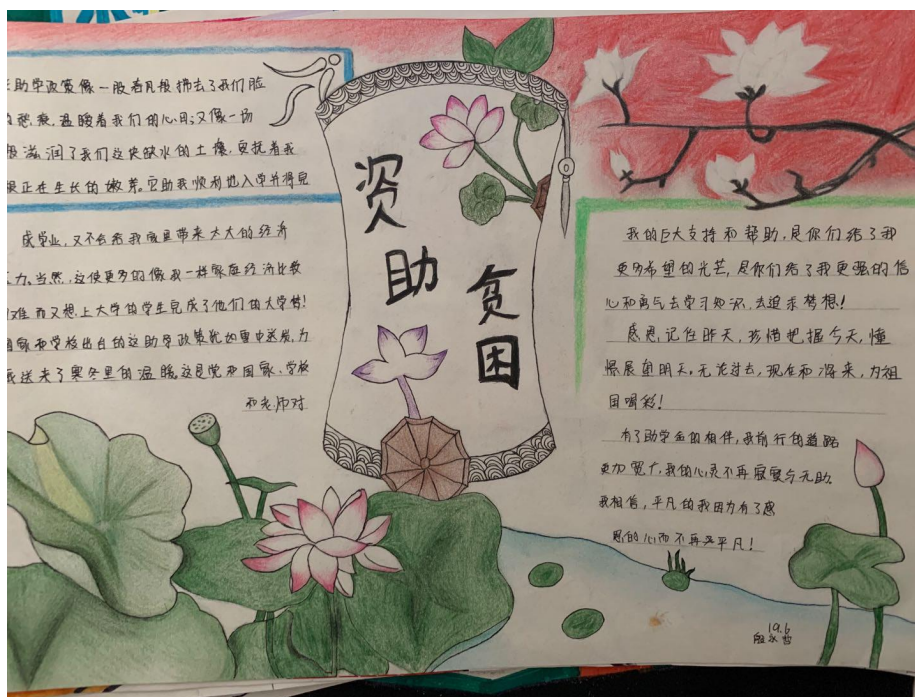 助学政策像一股春风般拂去了我们脸
愁痕,温暖着我们的心田;又像一场
滋润了我们这块缺水的土壤,更抚着我
正在生长的嫩芽。它助我顺利地入学并得完
成学业,又不会给我家里带来太大的经济
力。当然,这使更多的像我一样家庭经济比较
难而又想上大学的学生完成了他们的大学梦!
国家和学校出台的这助学政策犹如雪中送炭,为
我送来了寒冬里的温暖。这是党和国家、学校
和老师对
资助
贫困
我的巨大支持和帮助,是你们给了我
更多希望的光芒,是你们给了我更强的信
心和勇气去学习知识,去追求梦想!
感恩,记住昨天,珍惜把握今天,憧
憬展望明天。无论过去,现在和将来,为祖
国喝彩!
有了助学金的相伴,我前行的道路
更加宽广,我的心灵不再寂寞与无助。
我相信,平凡的我因为有了感
恩的心而不再平凡!
19.6